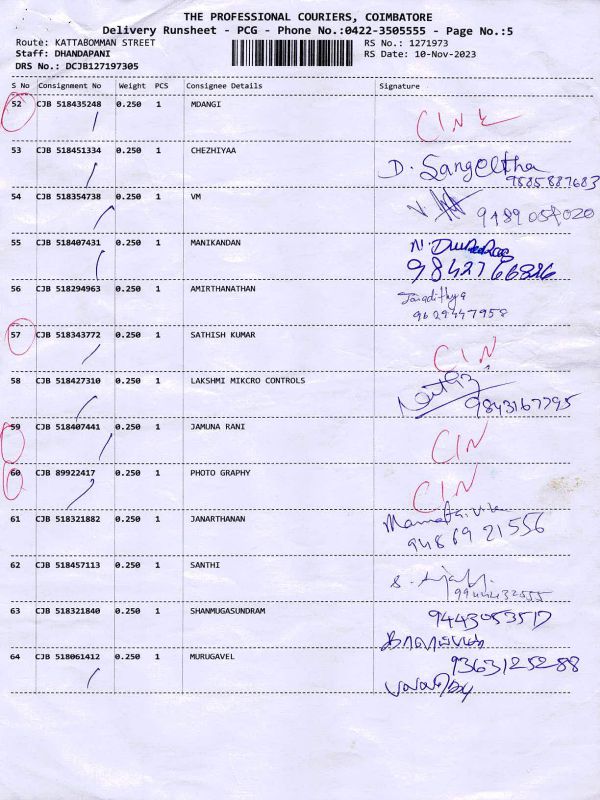 THE PROFESSIONAL COURIERS, COIMBATORE
Delivery Runsheet - PCG - Phone No.:0422-3505555 - Page No.:5
Route: KATTABOMMAN STREET RS No.: 1271973
Staff: DHANDAPANI RS Date: 10-Nov-2023
DRS No.: DCJB127197305
S No Consignment No Weight PCS Consignee Details Signature
52 CJB 518435248 0.250 1 MDANGI
CIN
53 CJB 518451334 0.250 1 CHEZHIYAA
D. Sangeetha
9585887683
54 CJB 518354738 0.250 1 VM
9489059020
55 CJB 518407431 0.250 1 MANIKANDAN
9842766886
56 CJB 518294963 0.250 1 AMIRTHANATHAN
9629447958
57 CJB 518343772 0.250 1 SATHISH KUMAR
CIN
58 CJB 518427310 0.250 1 LAKSHMI MIKCRO CONTROLS
9843167795
59 CJB 518407441 0.250 1 JAMUNA RANI
CIN
60 CJB 89922417 0.250 1 PHOTO GRAPHY
CIN
61 CJB 518321882 0.250 1 JANARTHANAN
9486921556
62 CJB 518457113 0.250 1 SANTHI
9944432555
63 CJB 518321840 0.250 1 SHANMUGASUNDRAM
9443053517
64 CJB 518061412 0.250 1 MURUGAVEL
9363125288